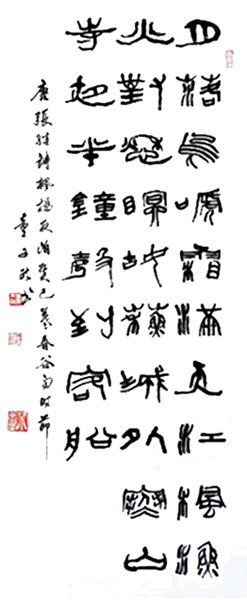 月落烏啼霜滿天江楓漁
火對愁眠姑蘇城外寒山
寺夜半鐘聲到客船
唐張繼詩楓橋夜泊癸巳暮春谷雨時節